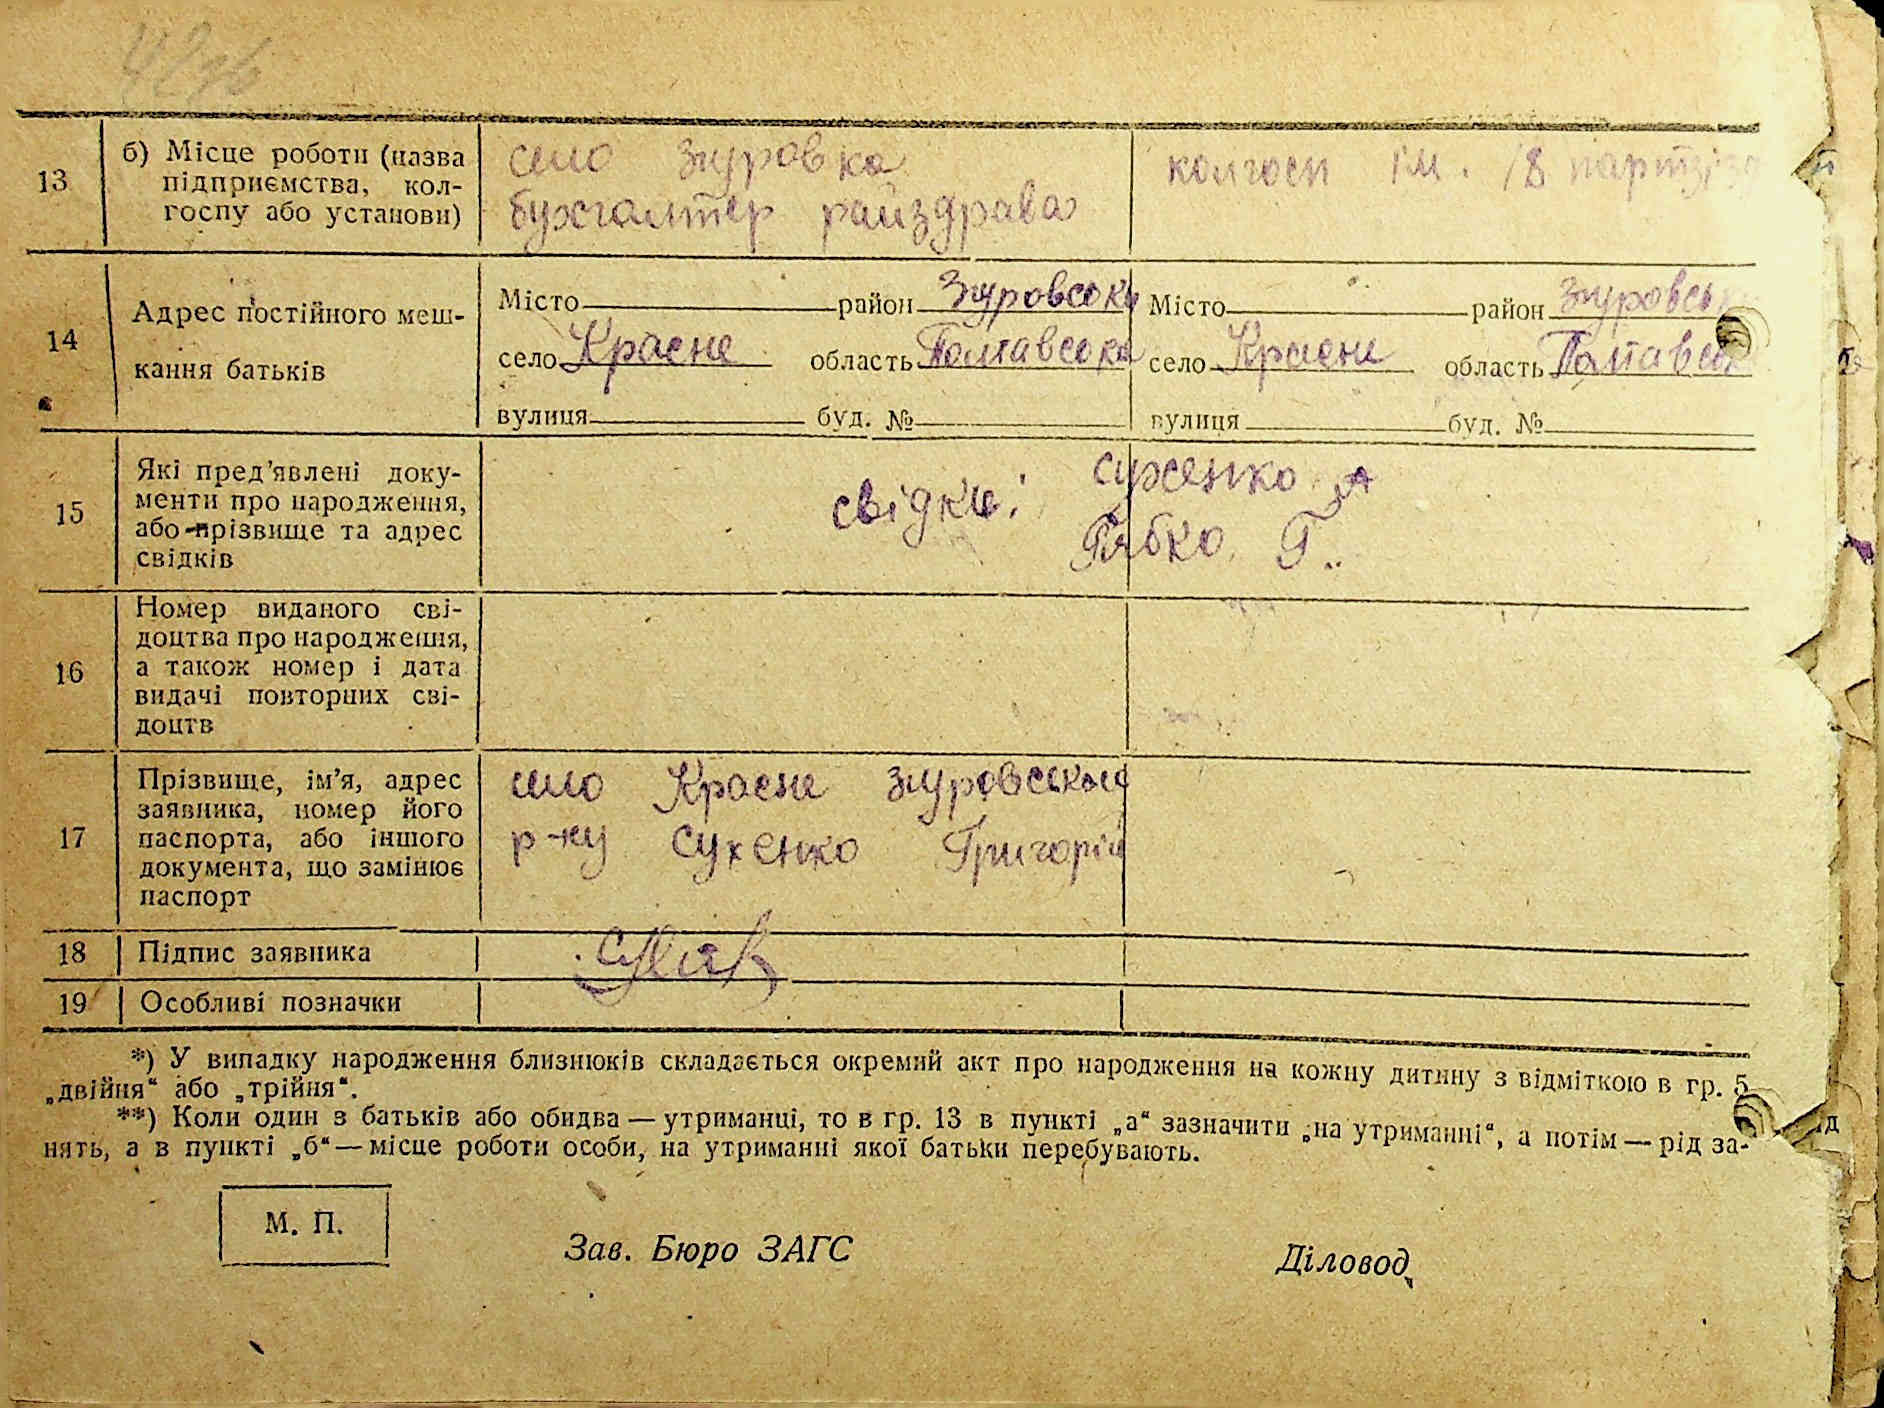 13
б) Місце роботи (назва
підприємства, кол-
госпу або установи)
село Згуровка
бухгалтер райздрава
колгосп ім. 18 партз
14
Адрес постійного меш-
кання батьків
Місто район Згуровсоки
село Красне область Полтавсока
вулиця буд. №
Місто район Згуровсь
село Красне область Полтавсо
вулиця буд. №
15
Які пред'явлені доку-
менти про народження,
або прізвище та адрес
свідків
свідки: Сухенко А
Рябко Г..
16
Номер виданого сві-
доцтва про народження,
а також номер і дата
видачі повторних сві-
доцтв
17
Прізвище, ім'я, адрес
заявника, номер його
паспорта, або іншого
документа, що замінює
паспорт
село Красне згуровського
р-ну Сухенко Григорій
18
Підпис заявника
19
Особливі позначки
*) У випадку народження близнюків складається окремий акт про народження на кожну дитину з відміткою в гр. 5
„двійня“ або „трійня“.
**) Коли один з батьків або обидва — утриманці, то в гр. 13 в пункті „а“ зазначити „на утриманні“, а потім — рід за-
нять, а в пункті „б“ — місце роботи особи, на утриманні якої батьки перебувають.
М. П.
Зав. Бюро ЗАГС
Діловод